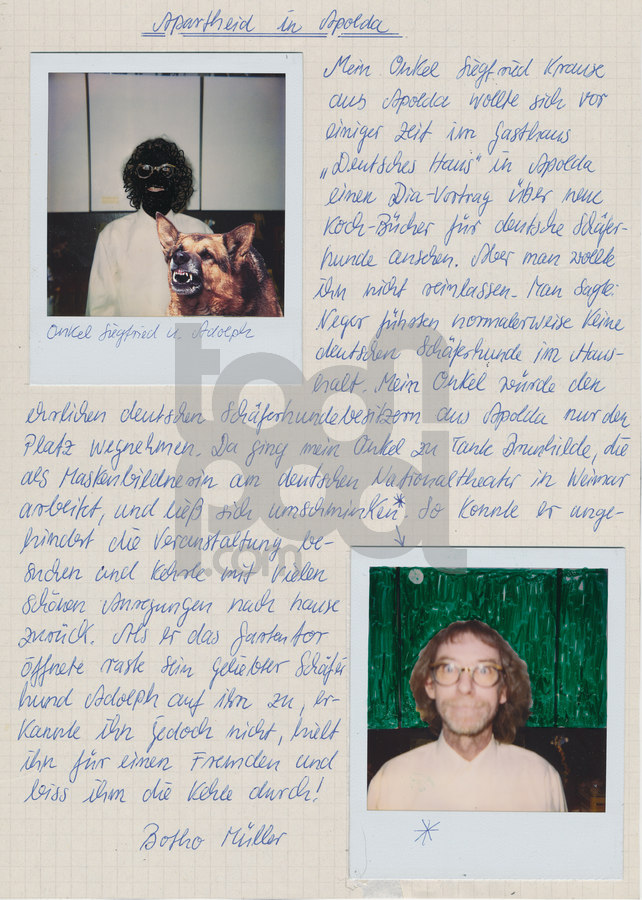 Apartheid in Apolda
Mein Onkel Siegfried Krause
aus Apolda wollte sich vor
einiger Zeit im Gasthaus
„Deutsches Haus" in Apolda
einen Dia-Vortrag über neue
Koch-Bücher für deutsche Schäfer-
hunde ansehen. Aber man wollte
ihn nicht reinlassen. Man sagte:
Neger führen normalerweise keine
deutschen Schäferhunde im Haus-
halt. Mein Onkel würde den
ehrlichen deutschen Schäferhundebesitzern aus Apolda nur den
Platz wegnehmen. Da ging mein Onkel zu Tante Brunhilde, die
als Maskenbildnerin am deutschen Nationaltheater in Weimar
arbeitet, und ließ sich umschminken*. So konnte er unge-
hindert die Veranstaltung be-
suchen und kehrte mit vielen
schönen Anregungen nach hause
zurück. Als er das Gartentor
öffnete raste sein geliebter Schäfer
hund Adolph auf ihn zu, er-
kannte ihn jedoch nicht, hielt
ihn für einen Fremden und
biss ihm die Kehle durch!
Botho Müller
Onkel Siegfried u. Adolph
*
toonpool
.com